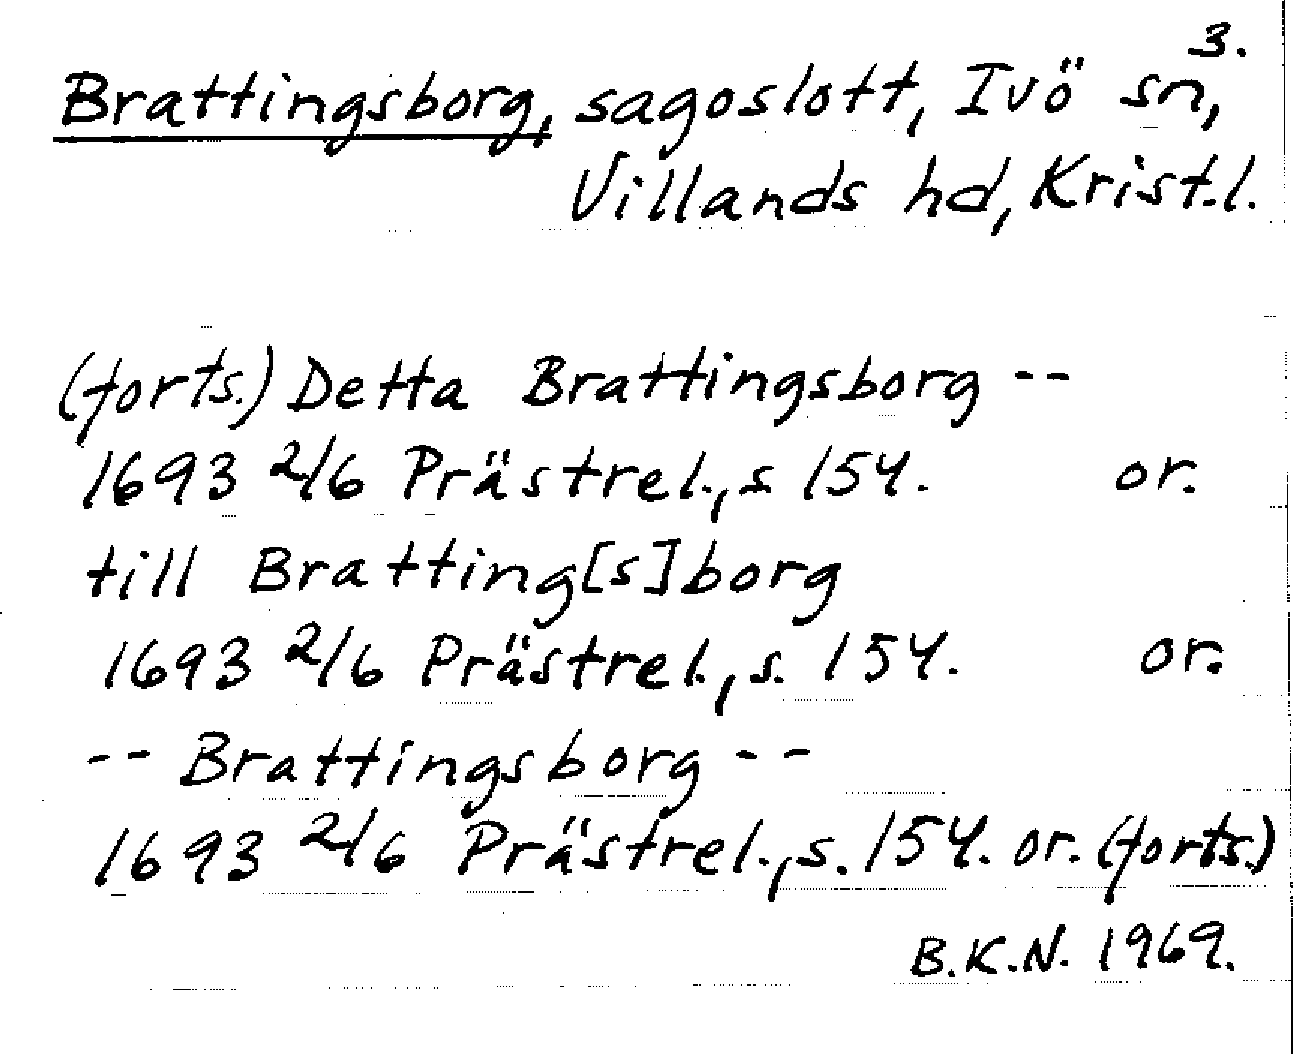 3.
Brattingsborg, sagoslott, Ivö sn,
Villands hd, Krist.l.
(forts.) Detta Brattingsborg --
1693 2/6 Prästrel., s 154. or.
till Bratting[s]borg
1693 2/6 Prästrel., s. 154. or.
-- Brattingsborg --
1693 2/6 Prästrel., s. 154. or. (forts.)
B.K.N. 1969.